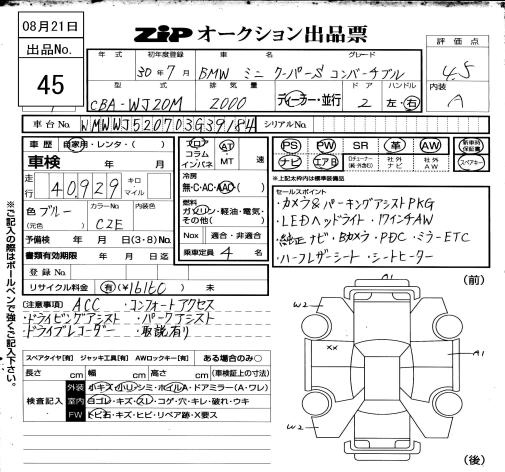 08月21日
ZIP オークション出品票
出品No.
45
年式 初年度登録 車名 グレード
30年7月 BMW ミニ クーパーS コンバーチブル
評価点
4.5
型式 排気量 ドア ハンドル
CBA-WJ20M 2000 ディーラー・並行 2 左・右
内装
A
車台No. WMWWJ520703G39184 シリアルNo.
車歴 自家用・レンタ・( )
車検 年 月
走行 40929 キロ マイル
色 ブルー (元色) カラーNo C2E 内装色
予備検 年 月 日(3・8)No.
書類有効期限 年 月 日迄
登録No.
リサイクル料金 有(¥16160) 未
フロア コラム インパネ AT MT 速
冷房 無・C・AC・AAC( )
燃料 ガソリン・軽油・電気・その他( )
Nox 適合・非適合
乗車定員 4 名
PS PW SR 革 AW 新車時保証書
ナビ エアB 社外ナビ 社外AW スペアキー
↑上記太枠内は標準装備品
セールスポイント
・カメラ&パーキングアシストPKG
・LEDヘッドライト ・17インチAW
・純正ナビ ・Bカメラ ・PDC ・ミラーETC
・ハーフレザーシート ・シートヒーター
(注意事項) ACC ・コンフォートアクセス
・ドライビングアシスト ・パークアシスト
・ドライブレコーダー ・取説有り
スペアタイヤ[有] ジャッキ工具[有] AWロックキー[有] ある場合のみ○
長さ cm 幅 cm 高さ cm (車検証上の寸法)
検査記入
外装 小キズ・小リ・シミ・ホイルA・ドアミラー(A・ワレ)
室内 ヨゴレ・キズ・スレ・コゲ・穴・キレ・破れ・ウキ
FW トビ石・キズ・ヒビ・リペア跡・X要ス
※ご記入の際はボールペンで強くご記入下さい。
(前)
A1
W2
XX
A1
W2
(後)